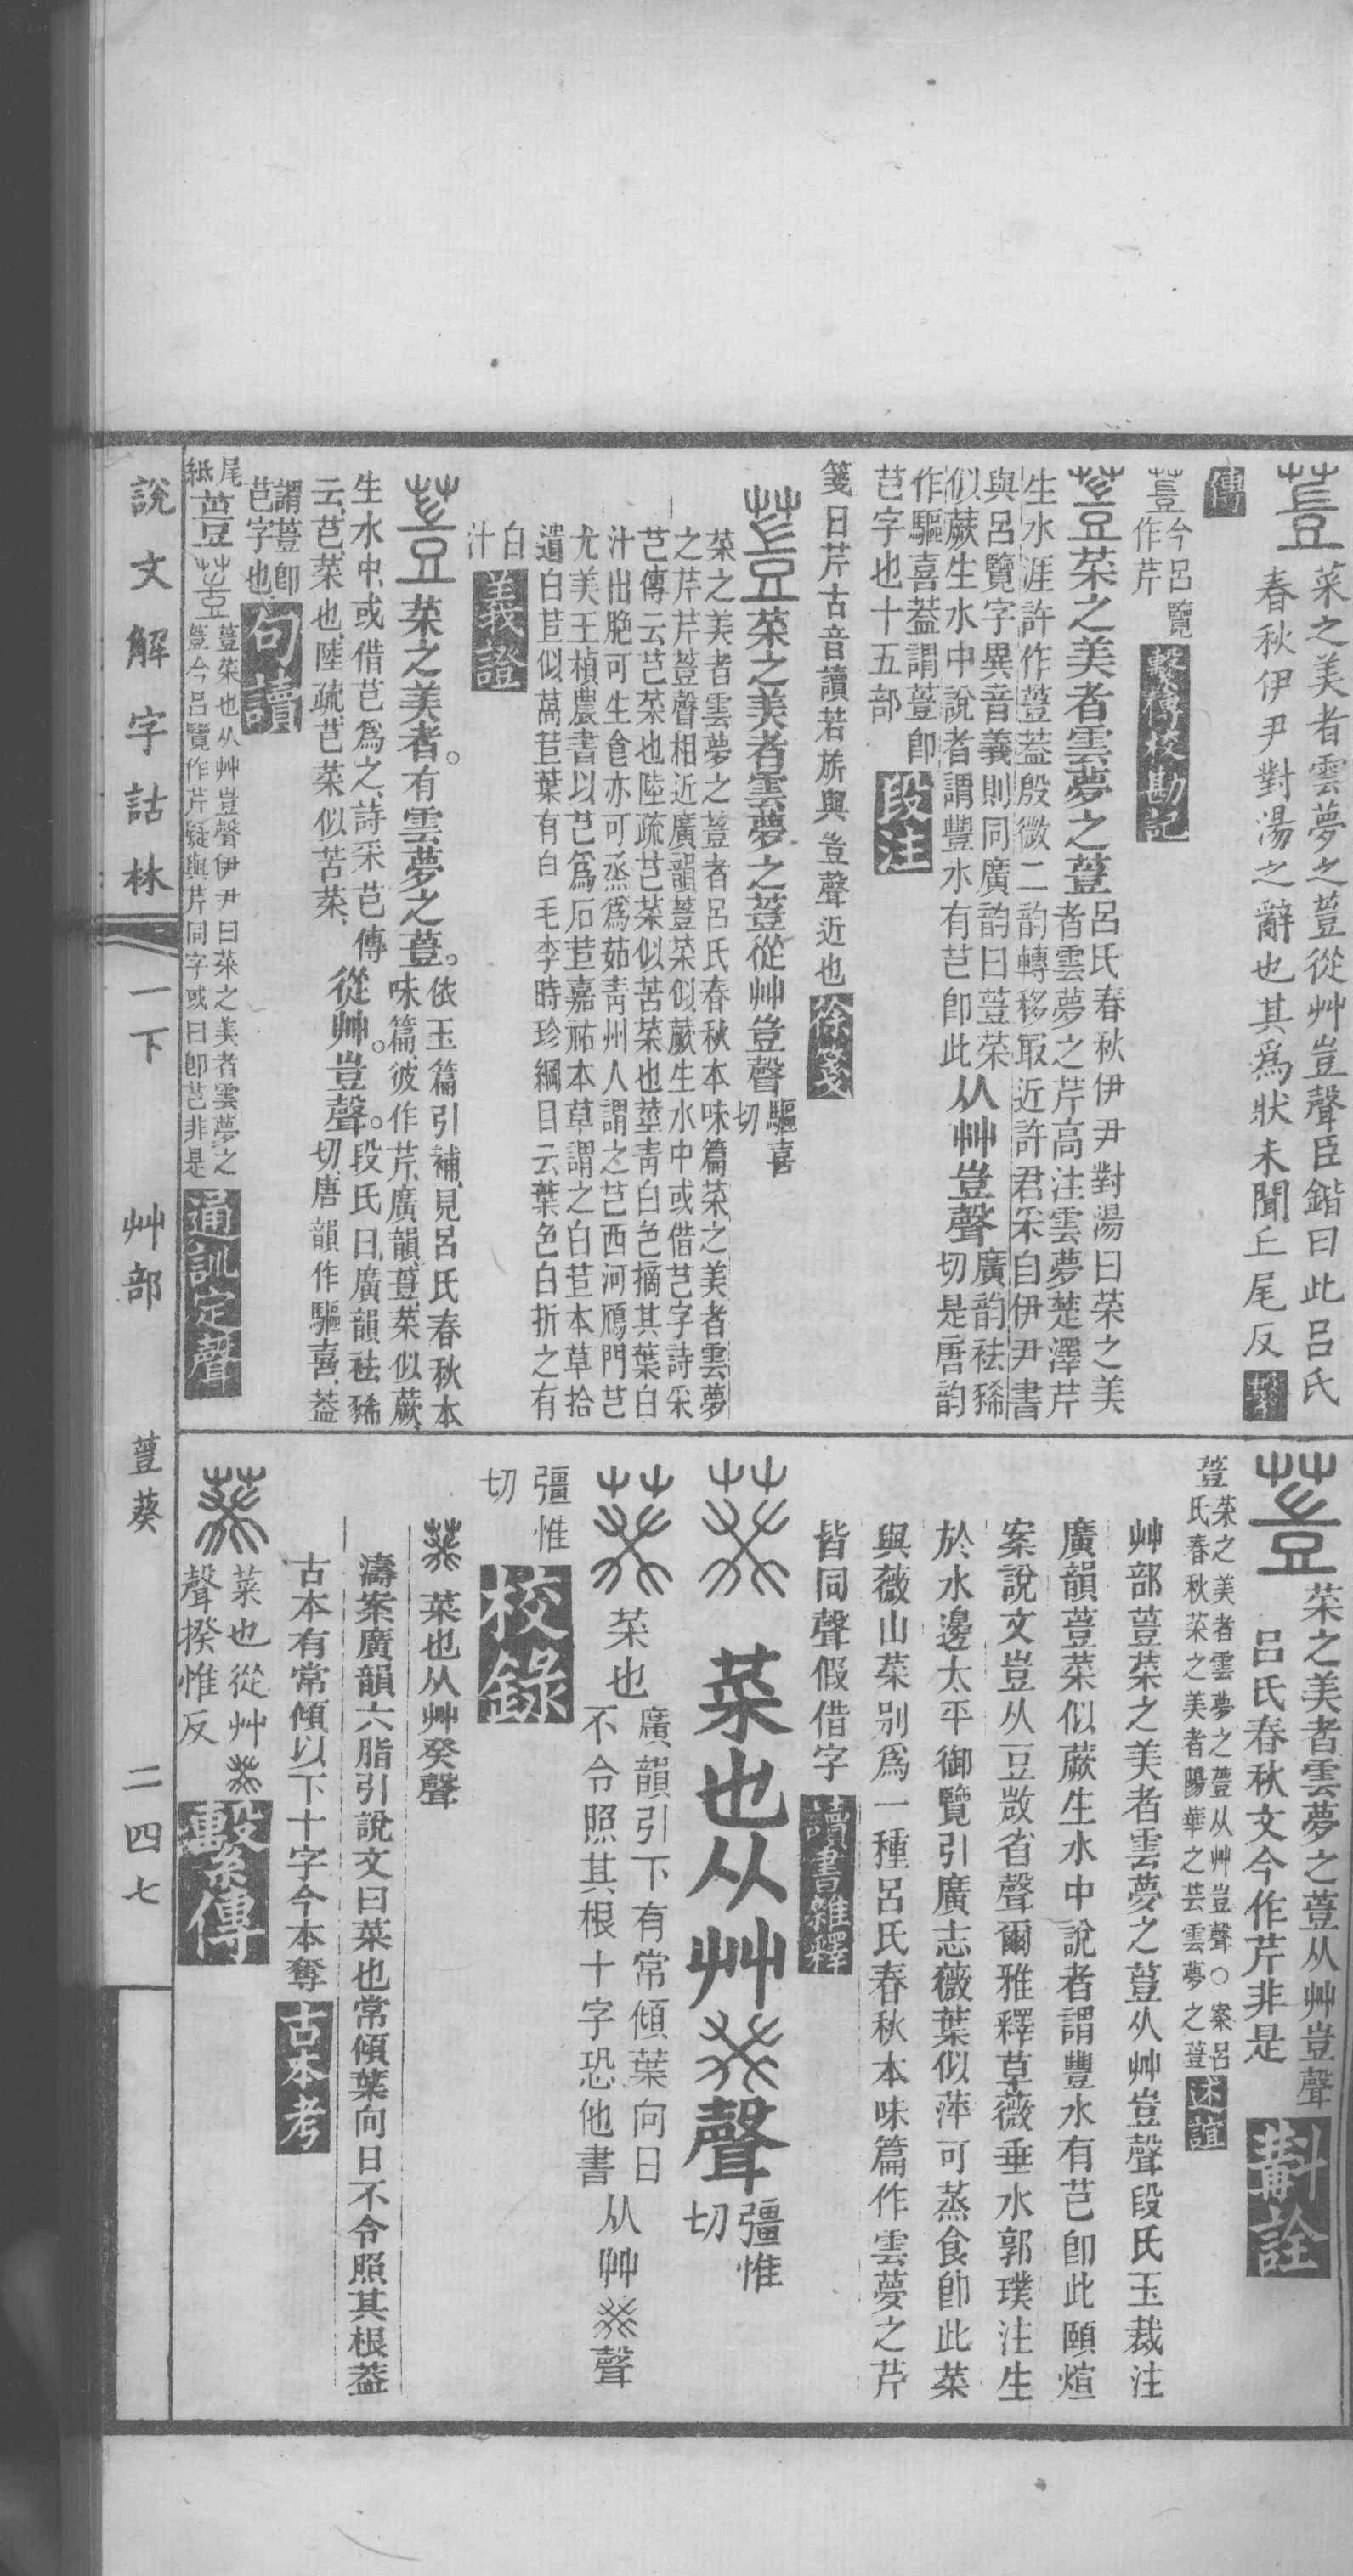 菜之美者雲夢之䔇從艸豈聲臣鍇曰此呂氏
春秋伊尹對湯之辭也其爲狀未聞丘尾反 繫
傳
䔇今呂覽
作芹 繫傳校勘記
菜之美者雲夢之䔇呂氏春秋伊尹對湯曰菜之美
者雲夢之芹高注雲夢楚澤芹
生水涯許作䔇葢殷微二韵轉移取近許君采自伊尹書
與呂覽字異音義則同廣韵曰䔇菜
似蕨生水中說者謂豐水有芑卽此从艸豈聲廣韵袪豨
切是唐韵
作驅喜葢謂䔇卽
芑字也十五部 段注
箋曰芹古音讀若旂與豈聲近也 徐箋
菜之美者雲夢之䔇從艸豈聲驅喜
切
菜之美者雲夢之䔇者呂氏春秋本味篇菜之美者雲夢
之芹芹䔇聲相近廣韻䔇菜似蕨生水中或借芑字詩采
芑傳云芑菜也陸疏芑菜似苦菜也莖青白色摘其葉白
汁出脆可生食亦可烝爲茹青州人謂之芑西河鴈門芑
尤美王楨農書以芑爲石苣嘉祐本草謂之白苣本草拾
遺白苣似萵苣葉有白毛李時珍綱目云葉色白折之有
白
汁 義證
菜之美者。有雲夢之䔇。依玉篇引補見呂氏春秋本
味篇彼作芹廣韻䔇菜似蕨
生水中或借芑爲之詩采芑傳
云芑菜也陸疏芑菜似苦菜從艸。豈聲。段氏曰廣韻袪豨
切唐韻作驅喜葢
謂䔇卽
芑字也 句讀
䔇䔇菜也从艸豈聲伊尹曰菜之美者雲夢之
䔇今呂覽作芹疑與芹同字或曰卽芑非是 通訓定聲
菜之美者雲夢之䔇从艸豈聲
呂氏春秋文今作芹非是 斠詮
䔇菜之美者雲夢之䔇从艸豈聲○案呂
氏春秋菜之美者陽華之芸雲夢之䔇 述誼
艸部䔇菜之美者雲夢之䔇从艸豈聲段氏玉裁注
廣韻䔇菜似蕨生水中說者謂豐水有芑卽此頤煊
案說文豈从豆敳省聲爾雅釋草薇垂水郭璞注生
於水邊太平御覽引廣志薇葉似萍可蒸食卽此菜
與薇山菜別爲一種呂氏春秋本味篇作雲夢之芹
皆同聲假借字 讀書雜釋
菜也从艸癸聲彊惟
切
菜也廣韻引下有常傾葉向日
不令照其根十字恐他書从艸癸聲
彊惟
切 校錄
葵菜也从艸癸聲
濤案廣韻六脂引說文曰菜也常傾葉向日不令照其根葢
古本有常傾以下十字今本奪 古本考
葵菜也從艸癸
聲揆惟反 繫傳
說文解字詁林 一下 艸部 䔇葵 二四七